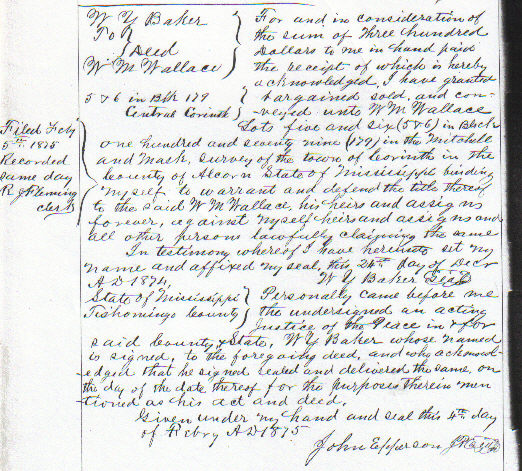 W Y Baker
To
Deed
W M Wallace
5 & 6 in Blk 179
Central Corinth
Filed Feby
5th 1875
Recorded
same day
R J Fleming
clerk
For and in consideration of
the sum of Three hundred
Dollars to me in hand paid
the receipt of which is hereby
acknowledged, I have granted
bargained sold, and con-
-veyed unto W M Wallace
Lots five and six (5 & 6) in Block
one hundred and seventy nine (179) in the Mitchell
and Mask, survey of the town of Corinth in the
County of Alcorn State of Mississippi binding
myself to warrant and defend the title thereof
to the said W M Wallace, his heirs and assigns
forever, against myself heirs and assigns and
all other persons lawfully claiming the same
In testimony whereof I have hereunto set my
name and affixed my seal, this 24th day of Decr
A D 1874,
W Y Baker Seal
State of Mississippi
Tishomingo County
Personally came before me
the undersigned an acting
Justice of the Peace in & for
said County & State, W Y Baker whose named
is signed, to the foregoing deed, and who acknowl-
-edged that he signed sealed and delivered the same, on
the day of the date thereof for the purposes therein men
tioned as his act and deed.
Given under my hand and seal this 4th day
of Febry A D 1875
John Epperson J P Seal